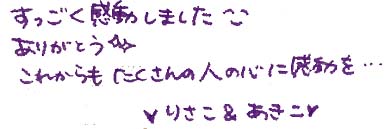 すっごく感動しました
ありがとう
これからも たくさんの人の心に感動を…
♥りさこ & あきこ♥